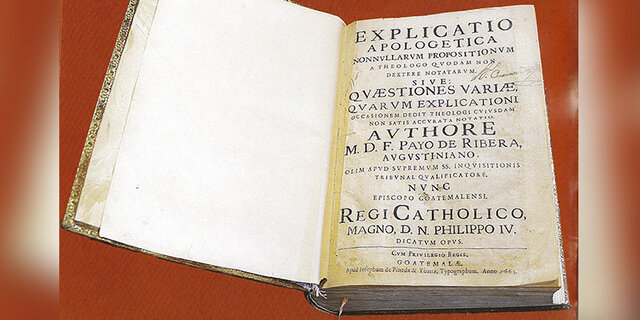 EXPLICATIO
APOLOGETICA
NONNVLLARVM PROPOSITIONVM
A THEOLOGO QVODAM NON
DEXTERE NOTATARVM.
SIVE:
QVÆSTIONES VARIÆ,
QVARVM EXPLICATIONI
OCCASIONEM DEDIT THEOLOGI CVIVSDAM
NON SATIS ACCVRATA NOTATIO.
AVTHORE
M. D. F. PAYO DE RIBERA,
AVGVSTINIANO.
OLIM APVD SVPREMVM SS. INQVISITIONIS
TRIBVNAL QVALIFICATORE,
NVNC
EPISCOPO GOATEMALENSI.
REGI CATHOLICO,
MAGNO, D. N. PHILIPPO IV.
DICATVM OPVS.
CVM PRIVILEGIO REGIS.
GOATEMALÆ,
Apud Iosephum de Pineda & Ybarra, Typographum. Anno 1663.